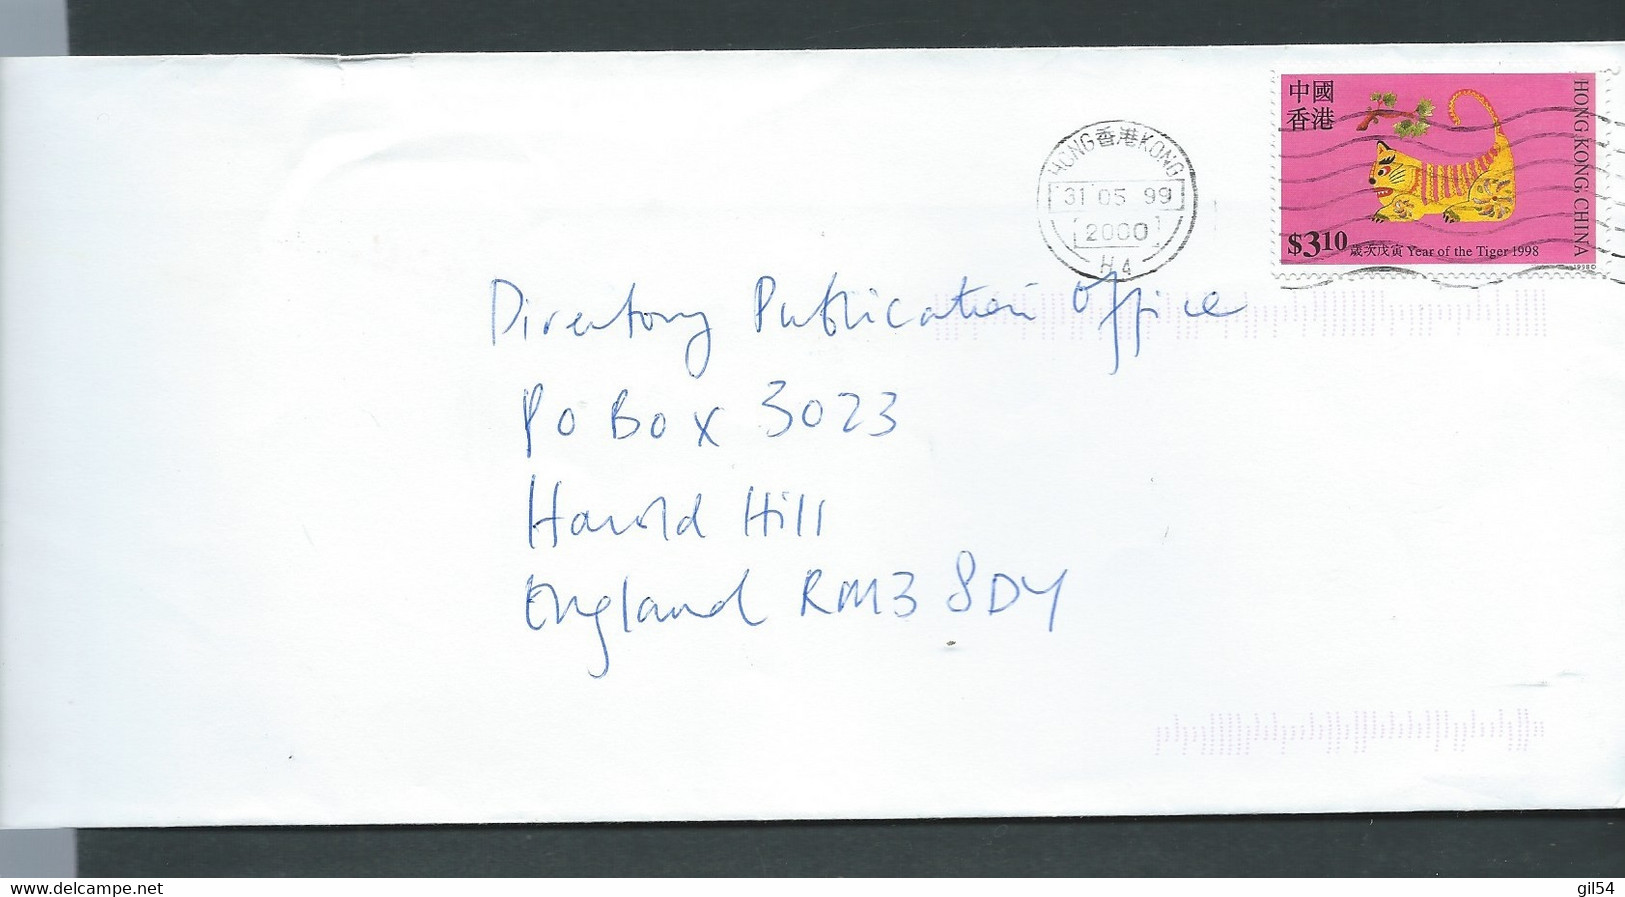 中國
香港
HONG KONG, CHINA
$310 歲次戊寅 Year of the Tiger 1998
1998©
HONG 香港 KONG
31 05 99
2000
H4
Directory Publication Office
PO Box 3023
Harold Hill
England RM3 8DY
www.delcampe.net
gil54